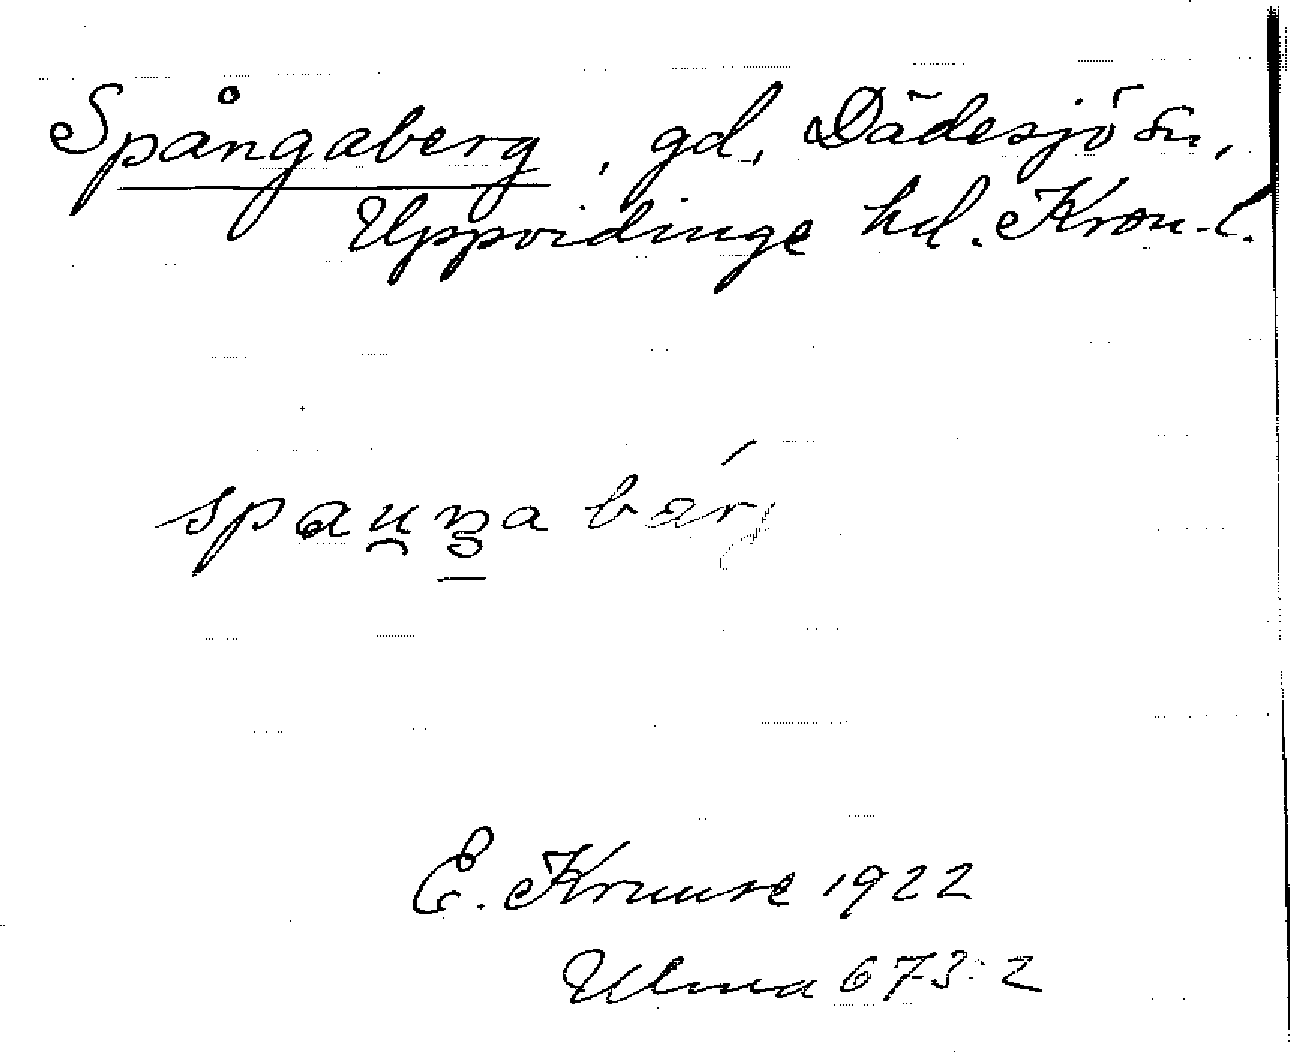 Spångaberg, gd, Dädesjö sn,
Uppvidinge hd. Kron.l.
spau̯ŋa bärj
E. Kruuse 1922
Ulma 673:2